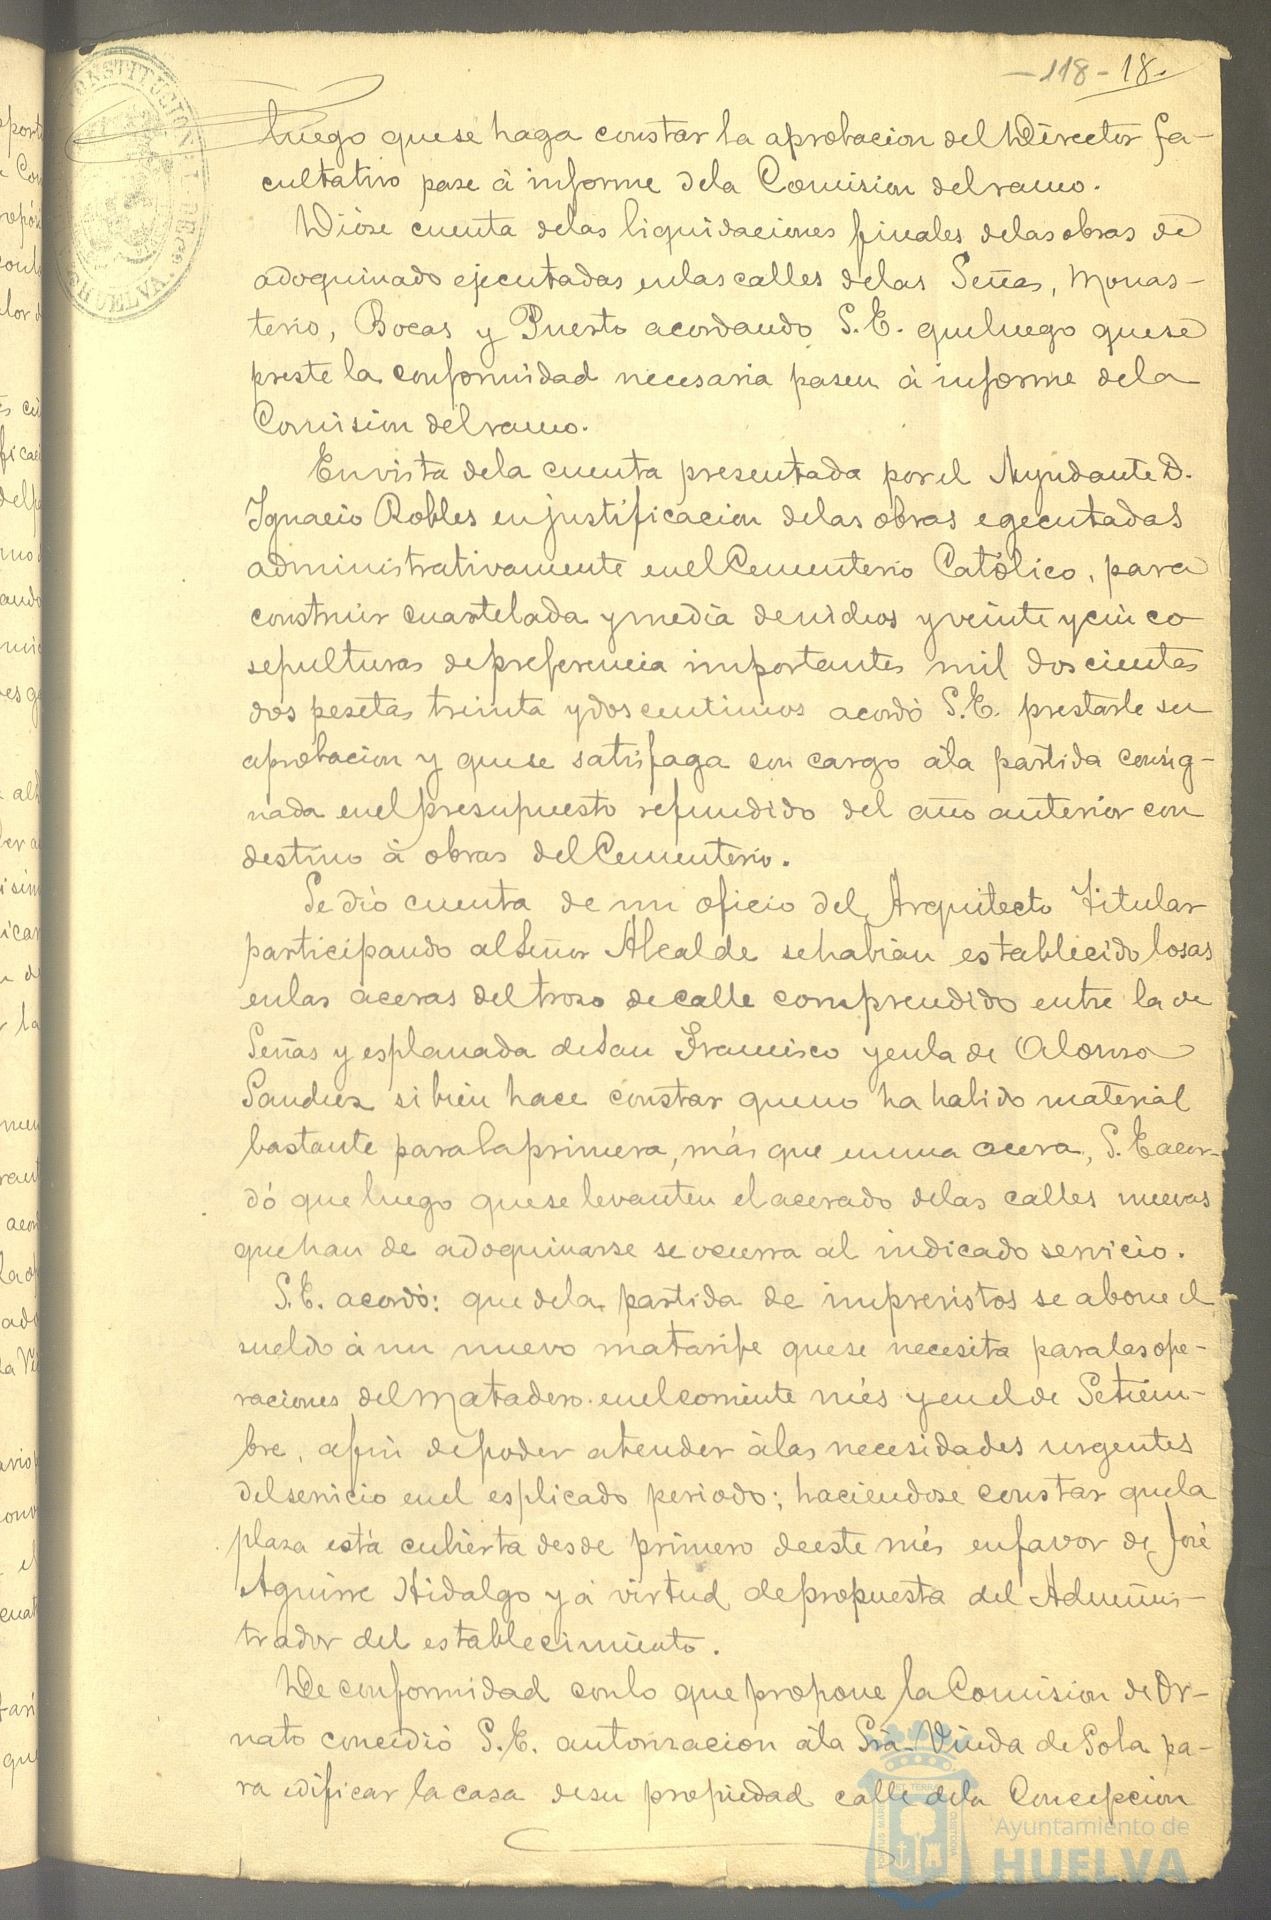 -118- 18.
luego que se haga constar la aprobacion del Director fa-
cultativo pase á informe dela Comision del ramo.
Dióse cuenta delas liquidaciones finales delas obras de
adoquinado ejecutadas en las calles delas Señas, Monas-
terio, Bocas y Puerto acordando S.E. que luego que se
preste la conformidad necesaria pasen á informe dela
Comision del ramo.
En vista dela cuenta presentada por el Ayudante D.
Ignacio Robles en justificacion delas obras egecutadas
administrativamente en el Cementerio Católico, para
construir cuartelada y media de nichos y veinte y cinco
sepulturas de preferencia importantes mil doscientas
dos pesetas treinta y dos centimos acordó S.E. prestarle su
aprobacion y que se satisfaga con cargo ála partida consig-
nada en el presupuesto refundido del año anterior con
destino á obras del Cementerio.
Se dió cuenta de un oficio del Arquitecto Titular
participando al Señor Alcalde se habian establecido losas
en las aceras del troso de calle comprendido entre la de
Señas y esplanada de San Francisco y en la de Alonso
Sanchez si bien hace constar que no ha habido material
bastante para la primera, más que en una acera, S. E acor-
dó que luego que se levanten el acerado delas calles nuevas
que han de adoquinarse se ocurra al indicado servicio.
S.E. acordó: que dela partida de imprevistos se abone el
sueldo á un nuevo matarife que se necesita para las ope-
raciones del Matadero en el corriente més y en el de Setiem-
bre, afin de poder atender álas necesidades urgentes
del servicio en el esplicado periodo; haciendose constar que la
plaza está cubierta desde primero de este més en favor de José
Aguirre Hidalgo y á virtud de propuesta del Adminis-
trador del establecimiento.
De conformidad con lo que propone la Comision de Or-
nato concedió S.E. autorizacion ála Sra. Viuda de Sola pa-
ra edificar la casa de su propiedad calle dela Concepcion
CONSTITUCIONAL DE
HUELVA.
Ayuntamiento de
HUELVA